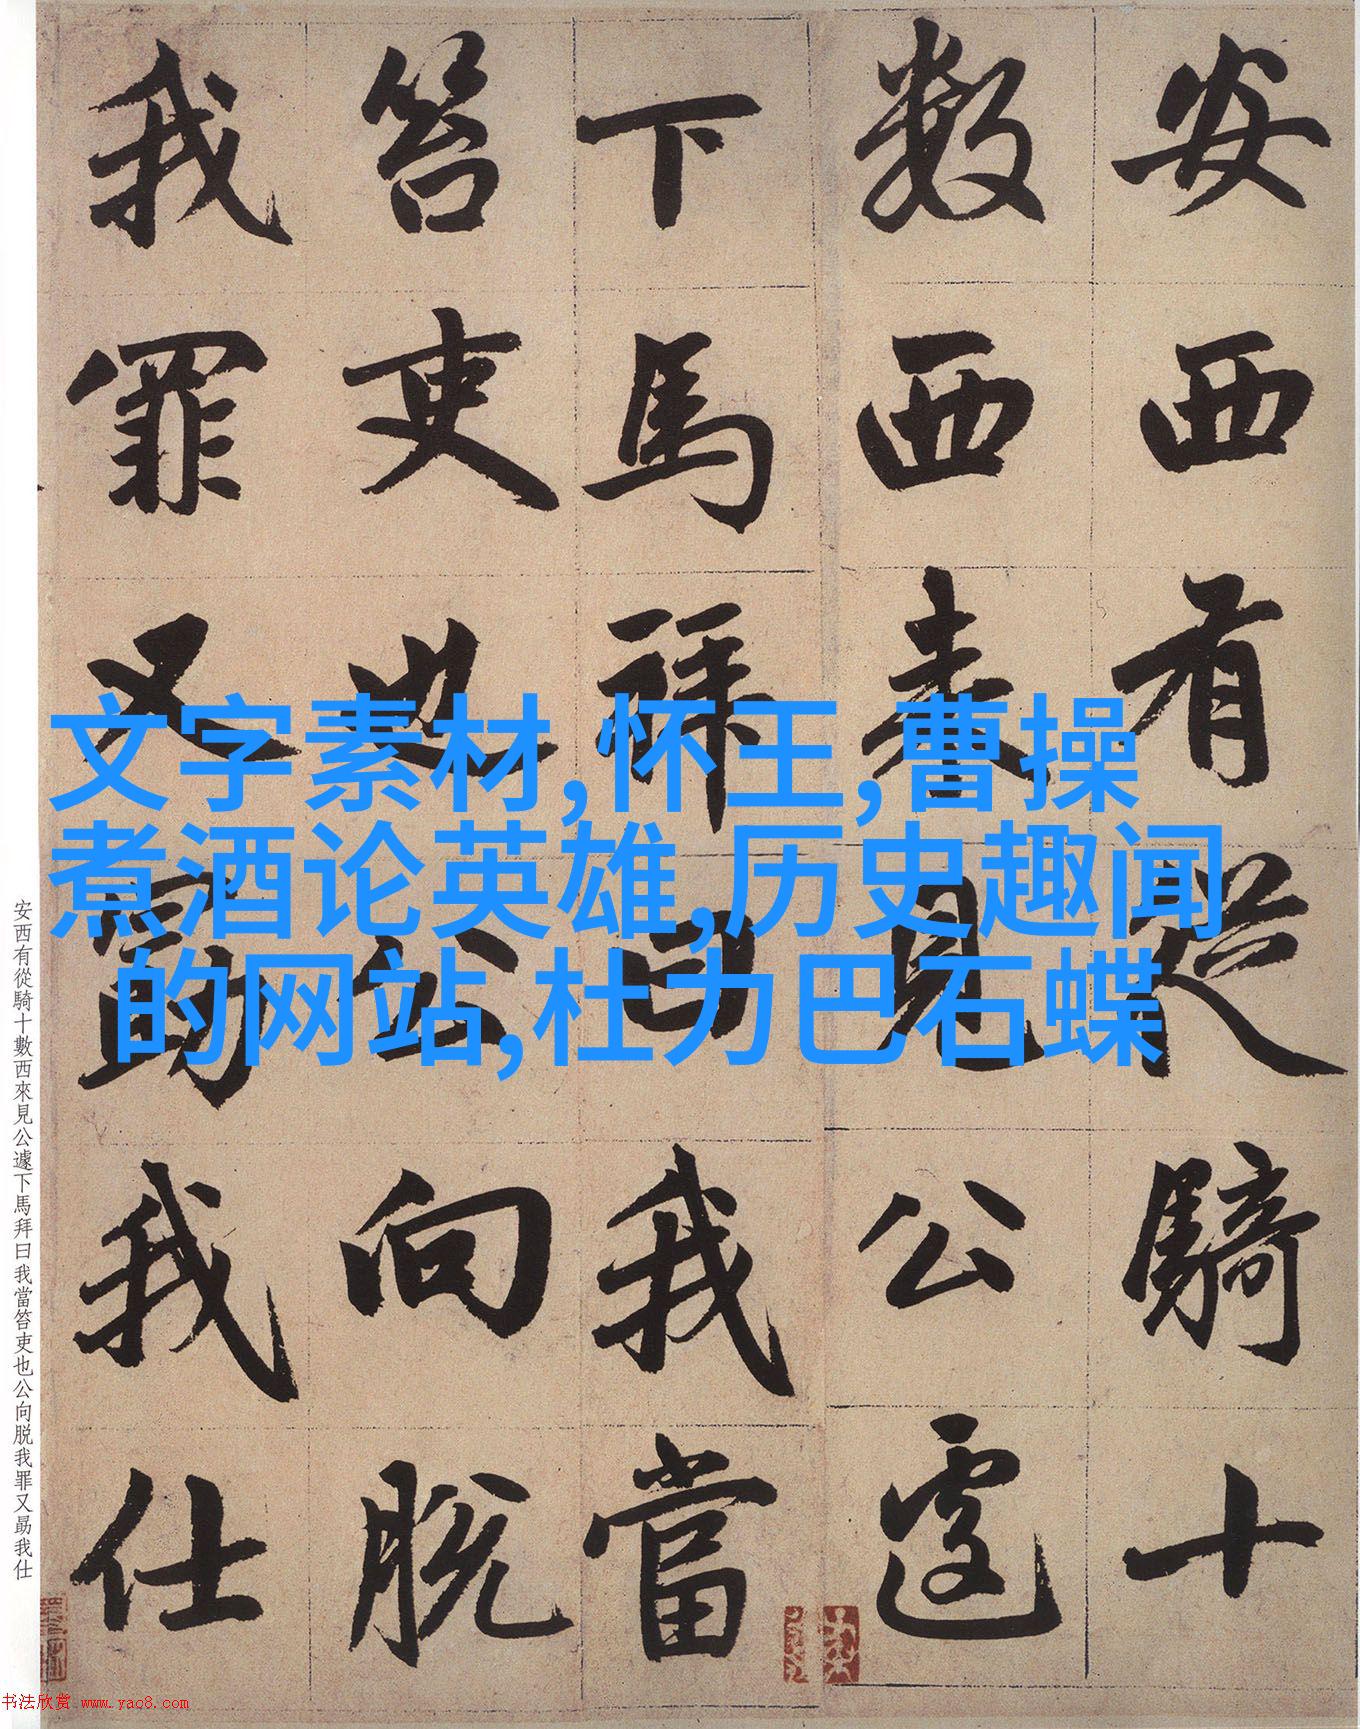 安西有從騎十
數西來見公遽
下馬拜曰我當
笞吏也公向脱
我罪又勗我仕
文字素材,怀王,曹操
煮酒论英雄,历史趣闻
的网站,杜力巴石蝶
安西有從騎十數西來見公遽下馬拜曰我當笞吏也公向脱我罪又勗我仕
书法欣赏 www.yac8.com